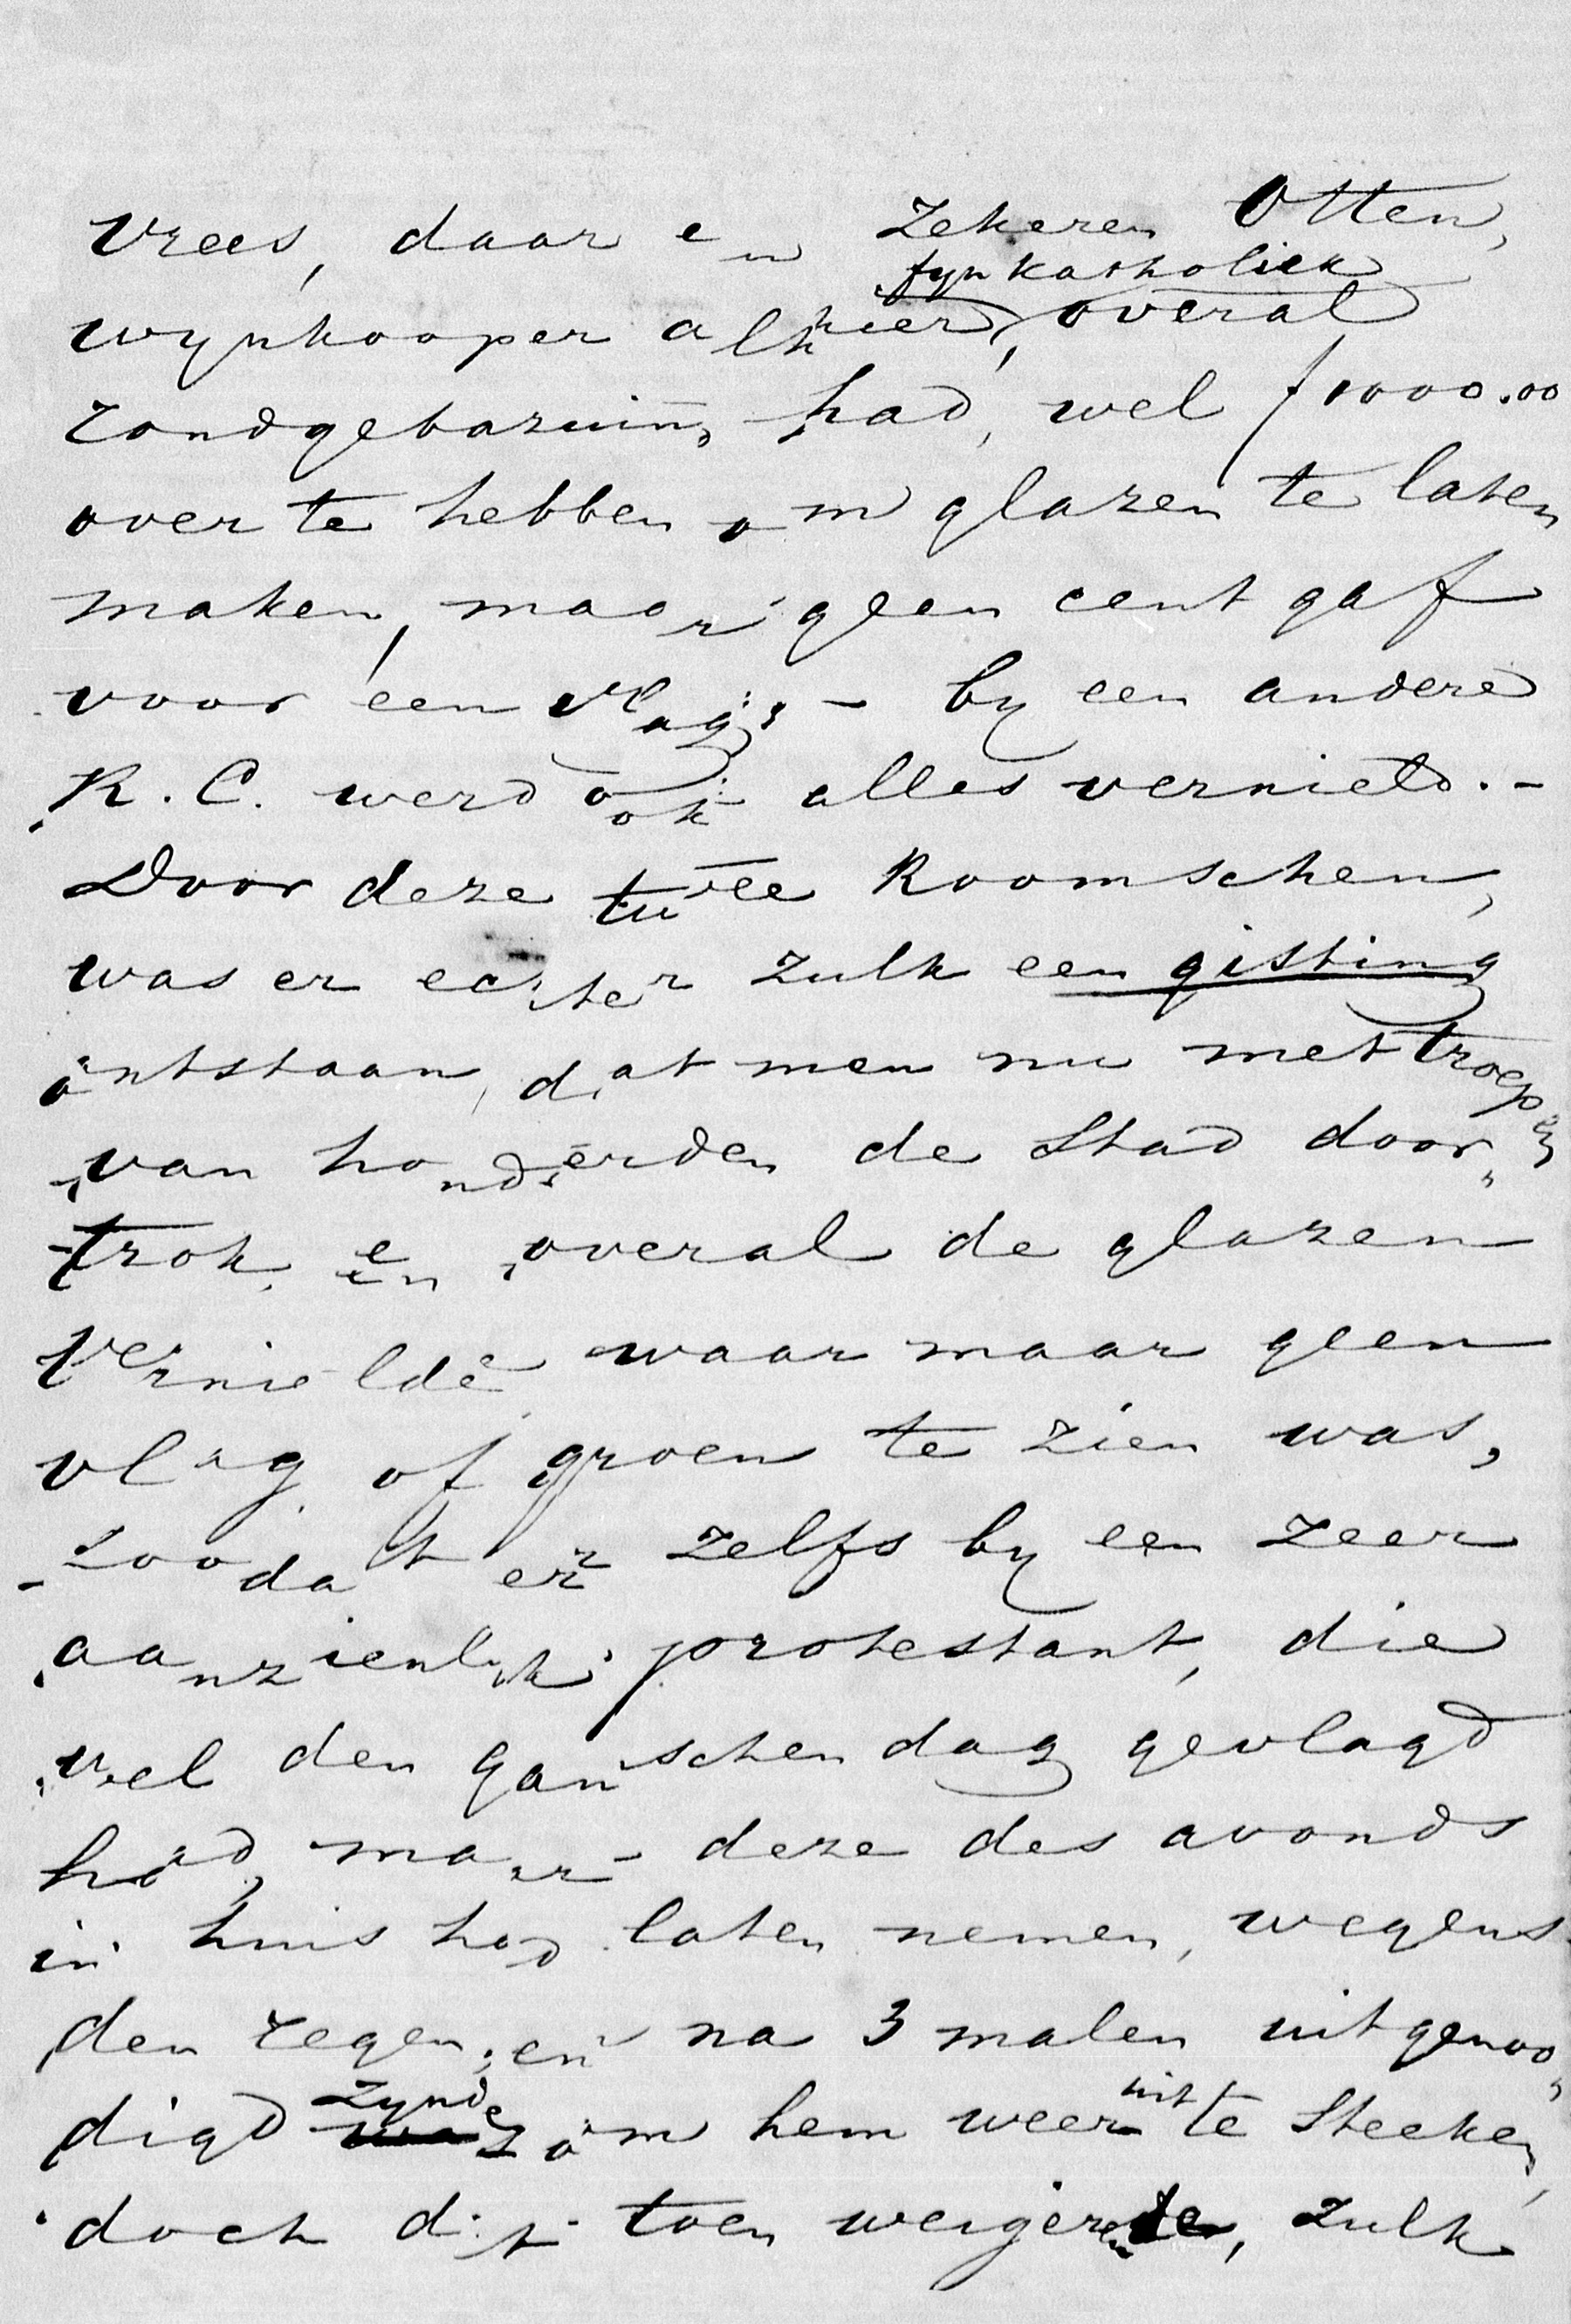 vrees, daar een zekeren Otten,
fyn katholiek
wynkooper alhier, overal
rondgebazuind had, wel ƒ1000.00
over te hebben om glazen te laten
maken, maar geen cent gaf
voor een vlag; - by een andere
R. C. werd ook alles vernield. -
Door deze twee Roomschen,
was er echter zulk een gisting
ontstaan, dat men nu met troepen
van honderden de Stad door-
trok en overal de glazen
vernielde waar maar geen
vlag of groen te zien was,
zoodat er zelfs by een zeer
aanzienlyk protestant, die
wel den ganschen dag gevlagd
had, maar deze des avonds
in huis had laten nemen, wegens
den regen; en na 3 malen uitgenoo-
zynde uit
digd was om hem weer te steeken,
doch dit toen weigerende, zulk